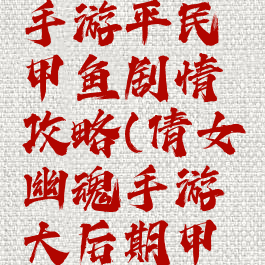 手游平民
甲鱼剧情
攻略(倩女
幽魂手游
大后期甲